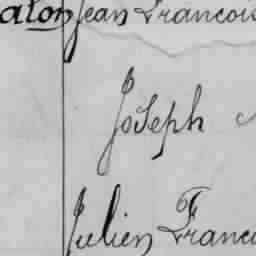 alon Jean Francois
Joseph
Julien Franco